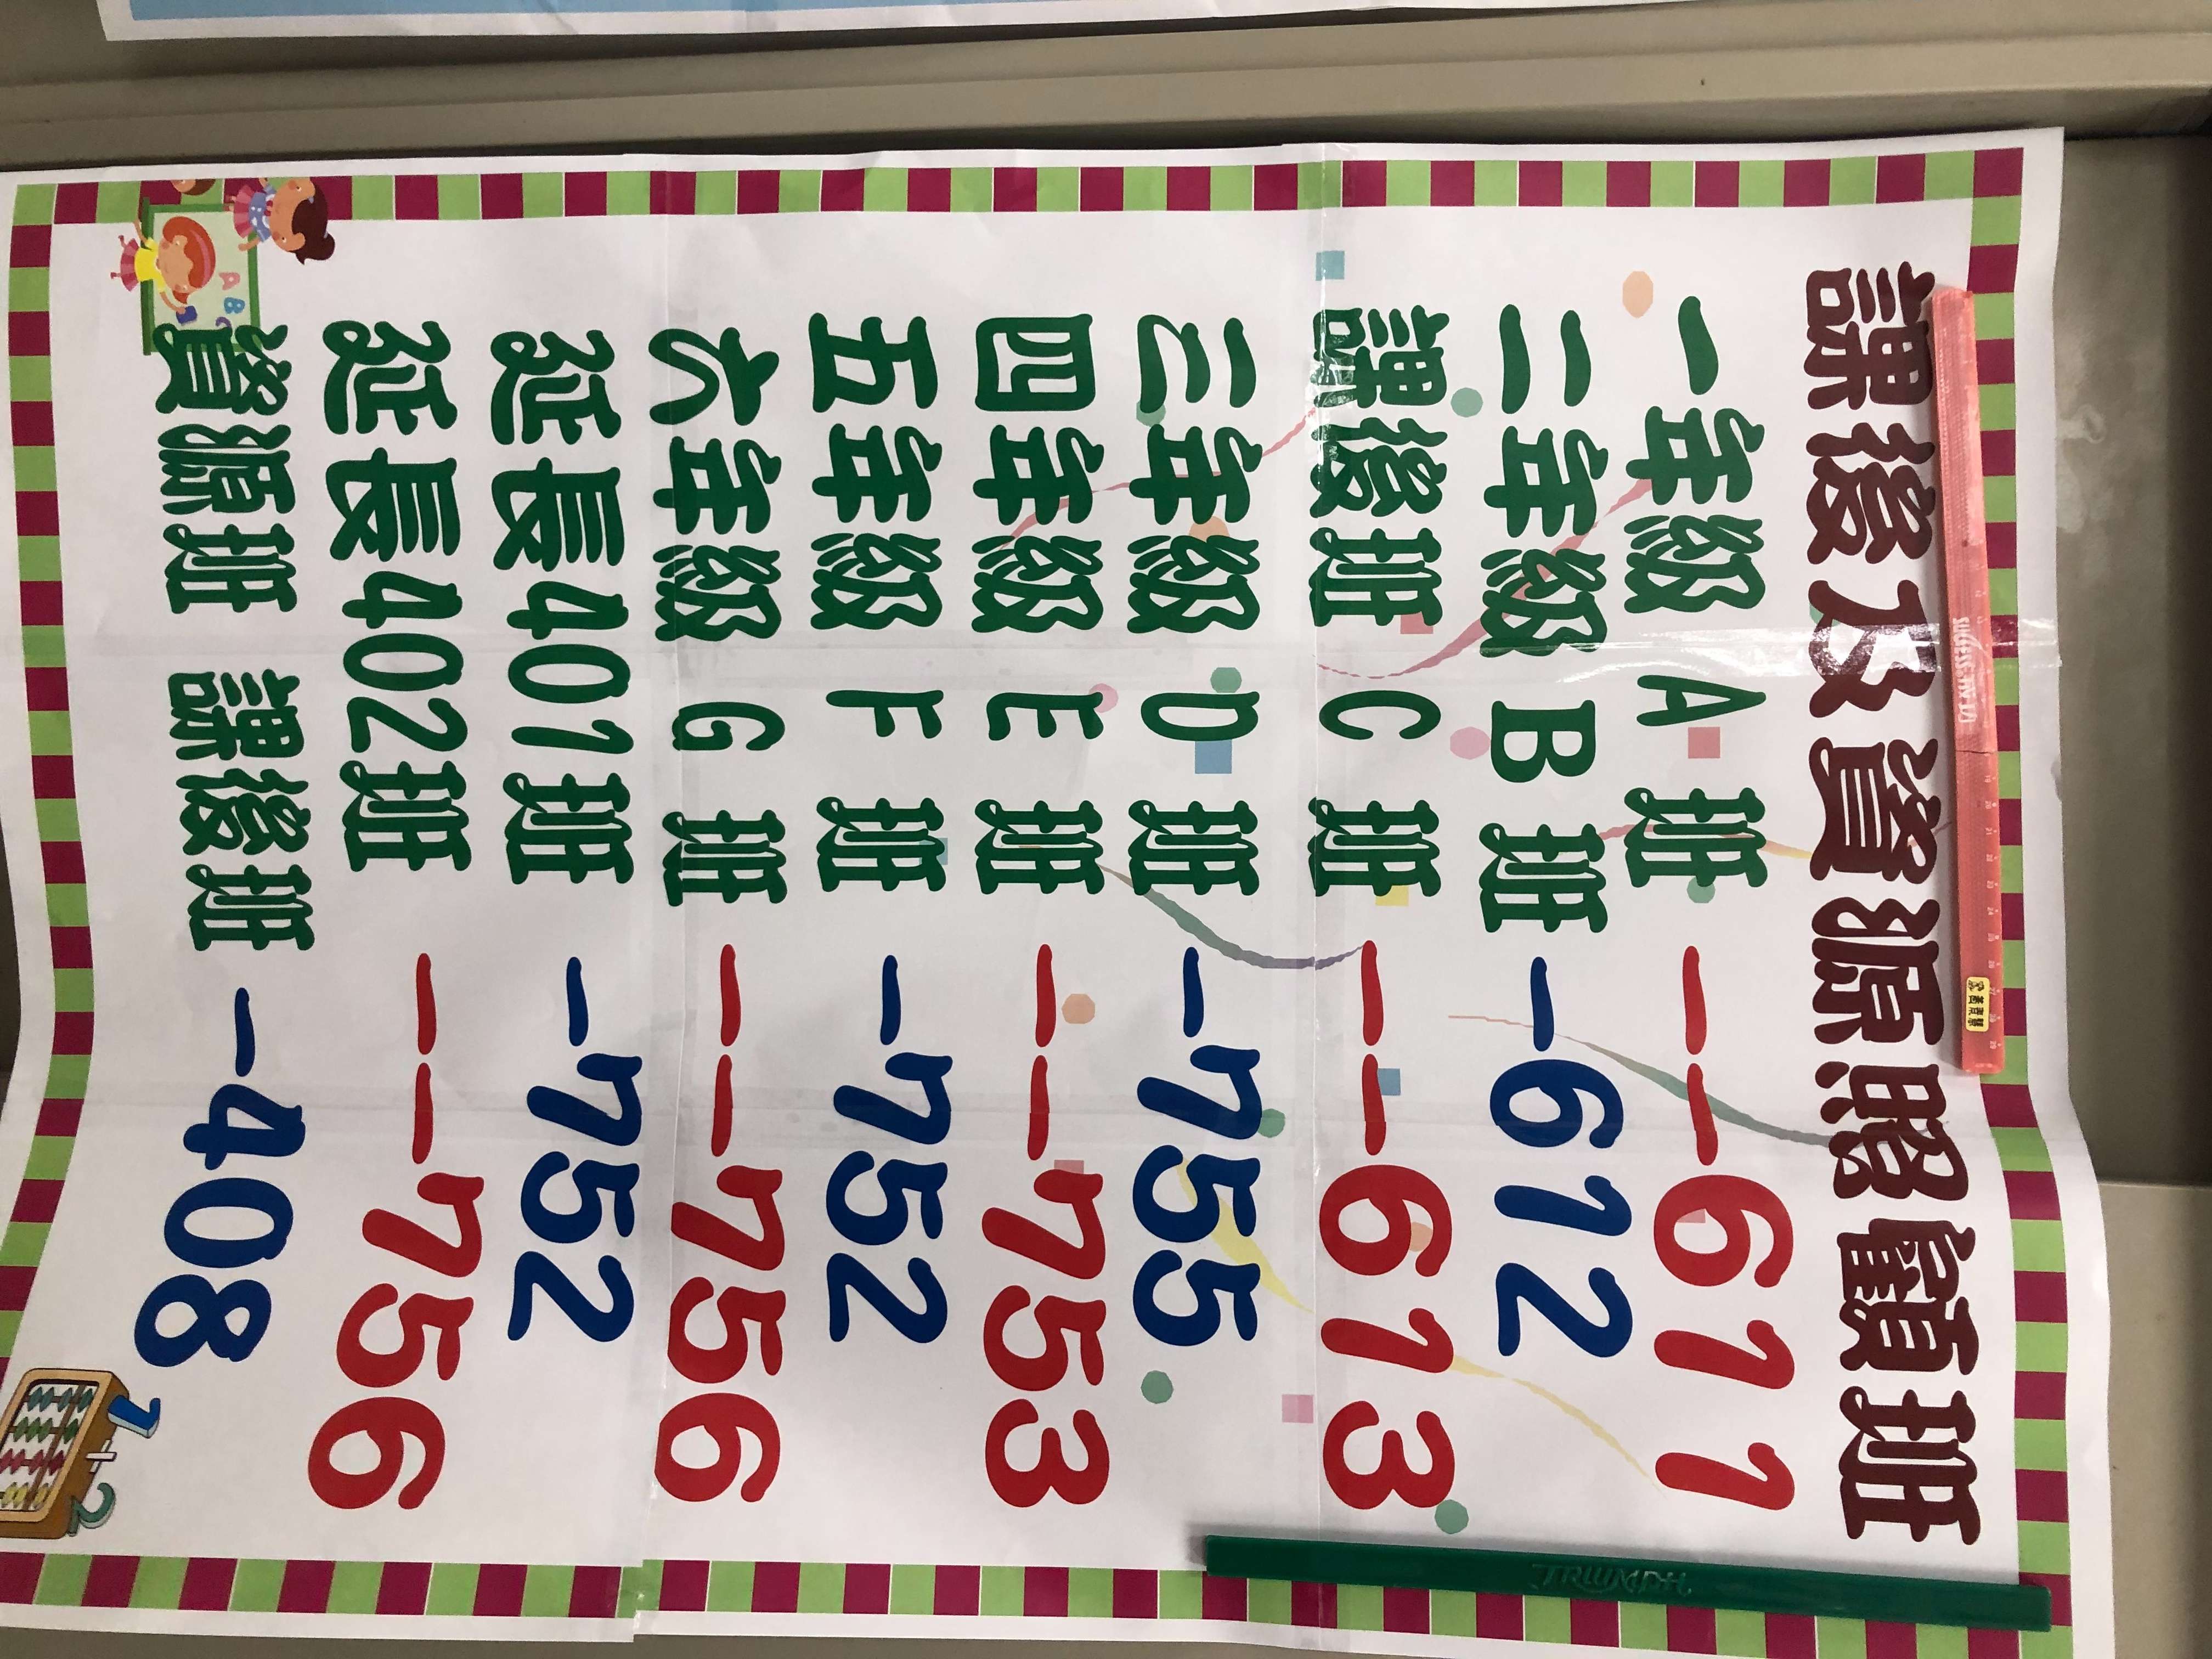 課後及資源照顧班
一年級 A 班 ——611
二年級 B 班 —612
課後班 C 班 ——613
三年級 D 班 —755
四年級 E 班 ——753
五年級 F 班 —752
六年級 G 班 ——756
延長401班 —752
延長402班 ——756
資源班 課後班 —408
TRIUMPH